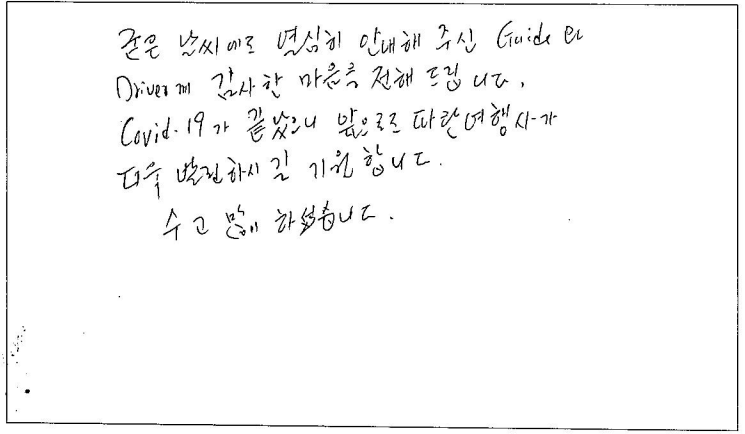 궂은 날씨에도 열심히 안내해 주신 Guide 및
Driver께 감사한 마음을 전해 드립니다.
Covid-19가 끝났으니 앞으로도 파란여행사가
더욱 발전하시길 기원합니다.
수고 많이 하셨습니다.